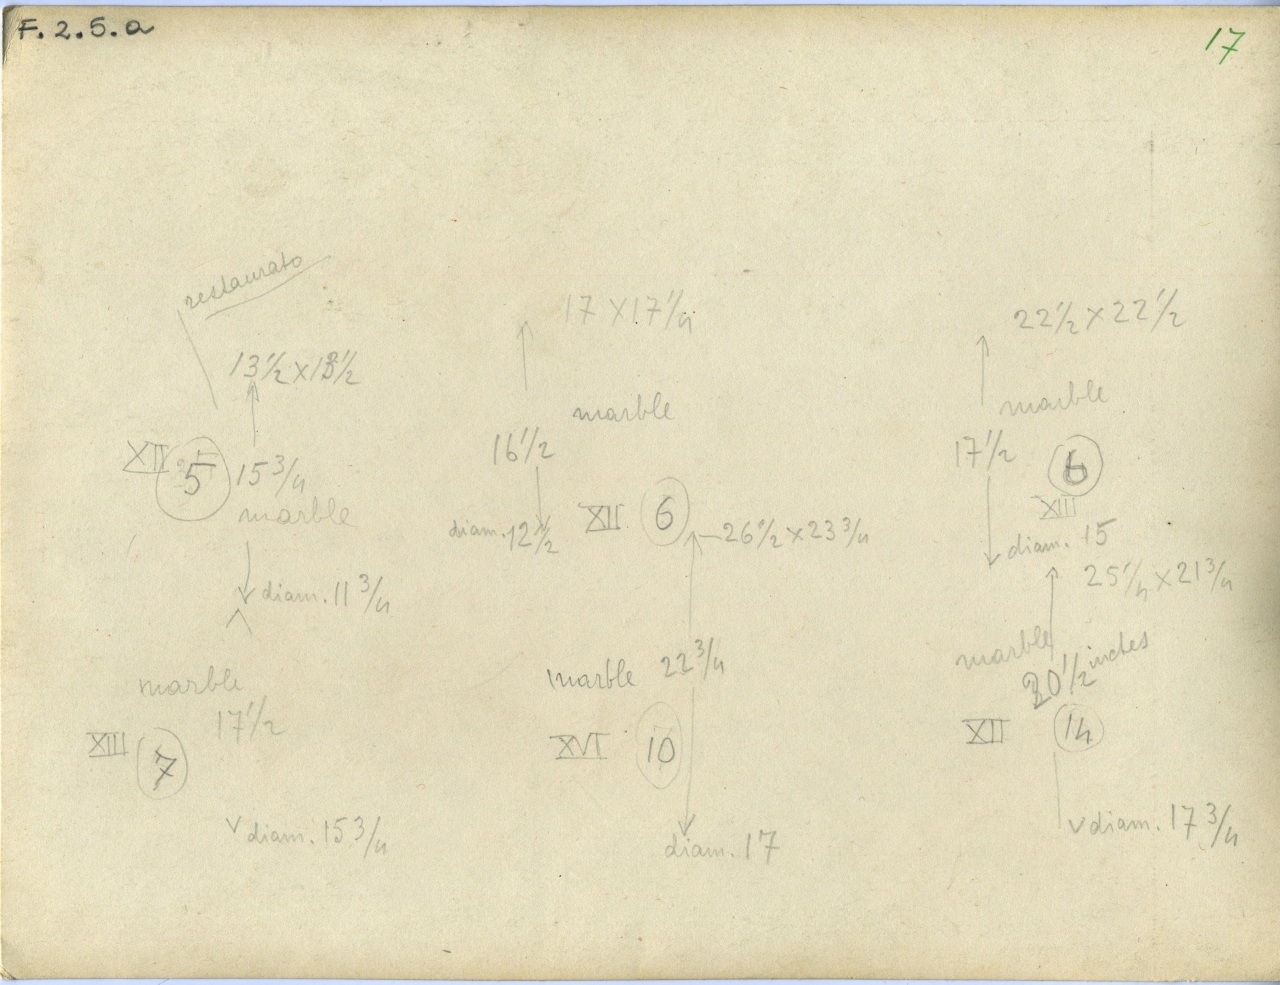 F.2.5.a
17
restaurato
13 1/2 X 13 1/2
XII 5 15 3/4
marble
diam. 11 3/4
17 X 17 1/4
marble
16 1/2
diam. 12 1/2
XII 6
22 1/2 X 22 1/2
marble
17 1/2 6
XIII
diam. 15
marble
17 1/2
XIII 7
diam. 15 3/4
26 1/2 X 23 3/4
marble 22 3/4
XVI 10
diam. 17
25 1/4 X 21 3/4
marble
20 1/2 inches
XII 14
diam. 17 3/4